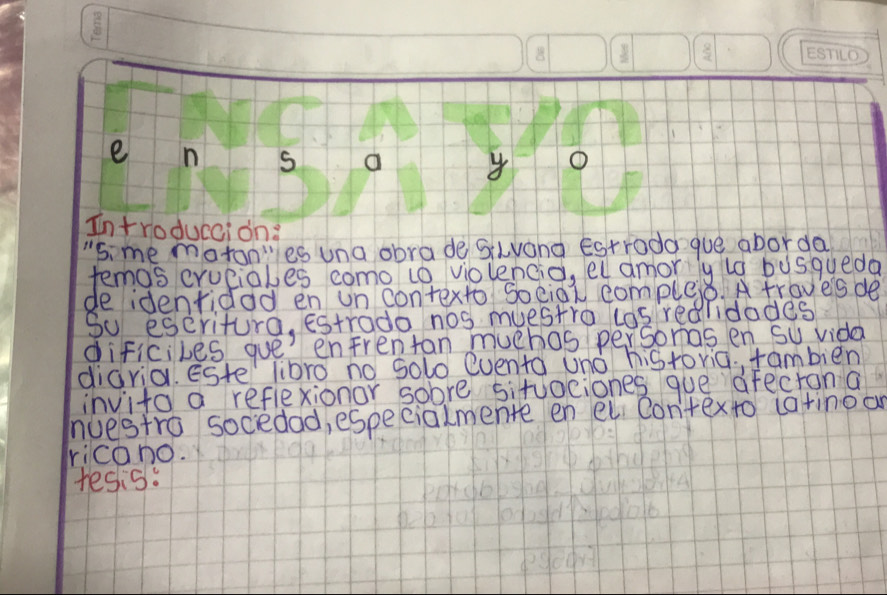 Tema
Dia
Mes
Año
ESTILO
ENSAYO
e n s a y o
Introducción:
"Si me matan" es una obra de Silvana Estrada que aborda
temas cruciales como la violencia, el amor y la busqueda
de identidad en un contexto Social complejo. A traves de
Su escritura, Estrada nos muestra las realidades
dificiles que enfrentan muchas personas en su vida
diaria. Este libro no solo cuenta una historia, tambien
invita a reflexionar sobre situaciones que afectan a
nuestra socedad, especialmente en el contexto latinoam
ricano.
tesis: